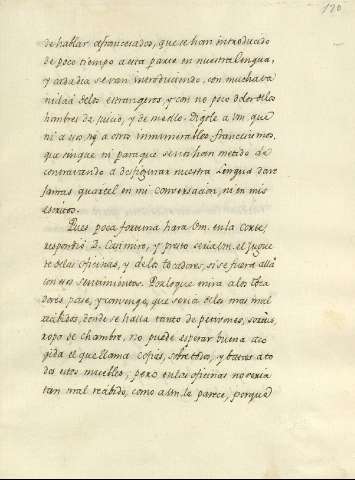 120
de hablar afrancesados, que se han introducido
de poco tiempo a esta parte en nuestra lengua,
y cada dia se van introduciendo, con mucha va
nidad de los estrangeros, y con no poco dolor de los
hombres de juicio, y de meollo. Digole a Vm que
ni a eso, ni a otros innumerables francesismos,
que sin que ni para que se nos han metido de
contravando a desfigurar nuestra Lengua dare
jamas quartel en mi conversacion, ni en mis
escritos.
Pues poca fortuna hará Vm. en la Corte,
respondió D. Casimiro, y presto seria Vm. el jugue
te de las oficinas, y de los tocadores, si se fuera allá
con esos sentimientos. Por lo que mira a los toca
dores, pase, y convengo, que seria de los mas mal
recibidos, donde se habla tanto de petimes,
ropa de chambre, no puede esperar buena aco
gida el que llama cofias, sobre todos, y batas a to
dos estos muebles; pero en las oficinas no seria
tan mal recibido, como a Vm. le parece, porque